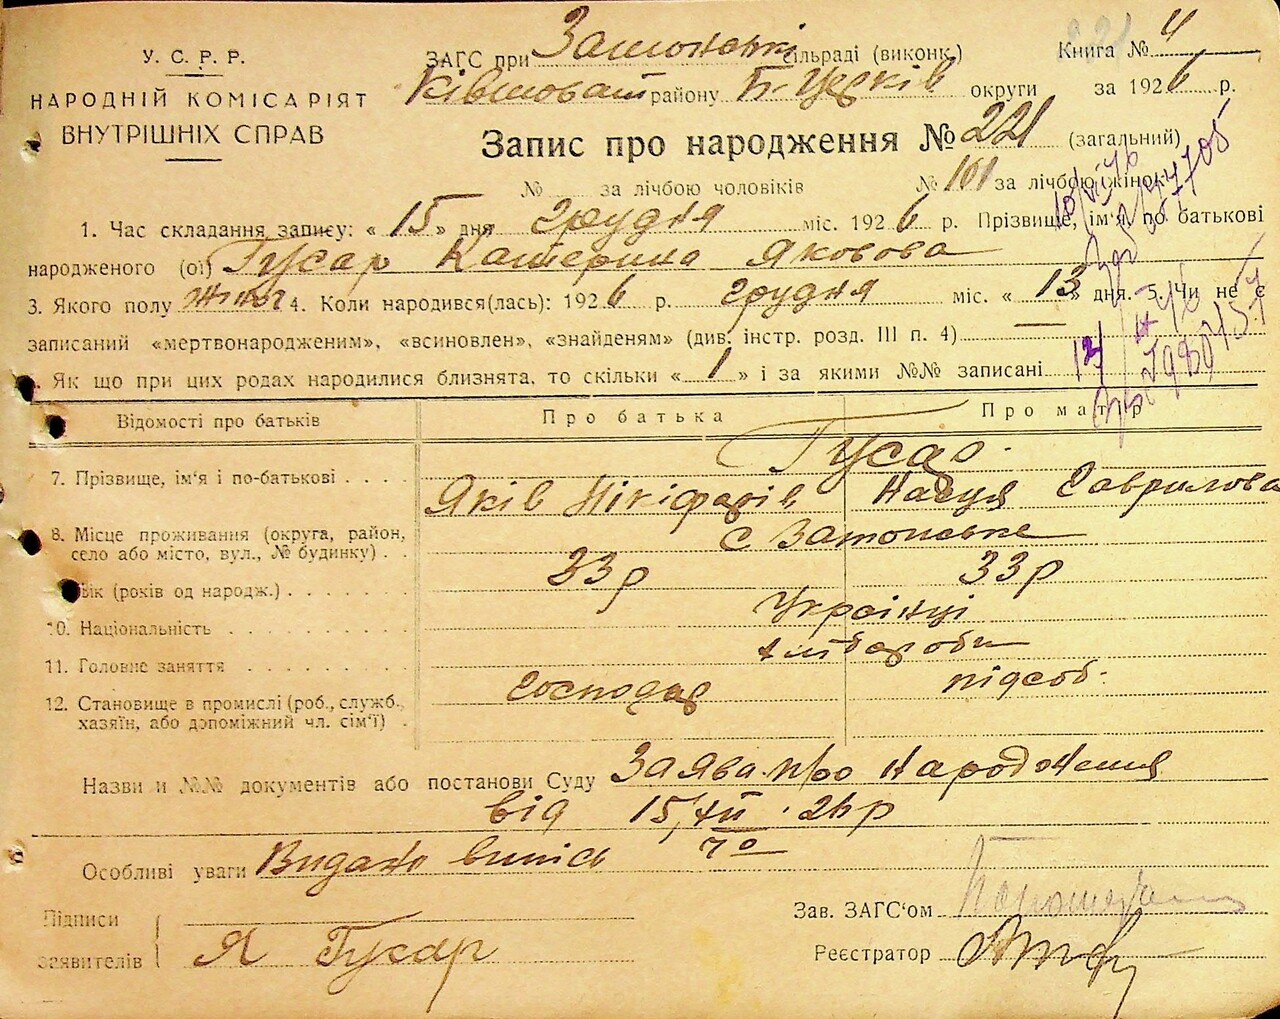 У. С. Р. Р.
НАРОДНІЙ КОМІСАРІЯТ
ВНУТРІШНІХ СПРАВ
ЗАГС при Затонські сільраді (виконк.)
Книга № 4
Ківшоват району Б-Церків округи за 1926 р.
Запис про народження № 221 (загальний)
№ за лічбою чоловіків № 101 за лічбою жінок
1. Час складання запису: « 15 » дня грудня міс. 1926 р. Прізвище, ім'я по батькові
народженого (ої) Гусар Катерина Яковова
3. Якого полу жіноч 4. Коли народився(лась): 1926 р. грудня міс. « 13 » дня. 5. Чи не є
записаний «мертвонародженим», «всиновлен», «знайденям» (див. інстр. розд. III п. 4) —
Як що при цих родах народилися близнята, то скільки « 1 » і за якими №№ записані
Відомості про батьків
Про батька
Про матір
Гусар
7. Прізвище, ім'я і по-батькові
Яків Нікіфорів
Настя Гаврилова
8. Місце проживання (округа, район,
село або місто, вул., № будинку)
с Затонське
Вік (років од народж.)
33 р
33 р
10. Національність
Українці
11. Головне заняття
хлібороби
12. Становище в промислі (роб., служб.,
хазяїн, або допоміжний чл. сім'ї)
господар
підсоб.
Назви и №№ документів або постанови Суду Заява про народження
від 15/XII 26 р
Особливі уваги Видано випись
Підписи
заявителів
Я Гусар
Зав. ЗАГС'ом
Реєстратор